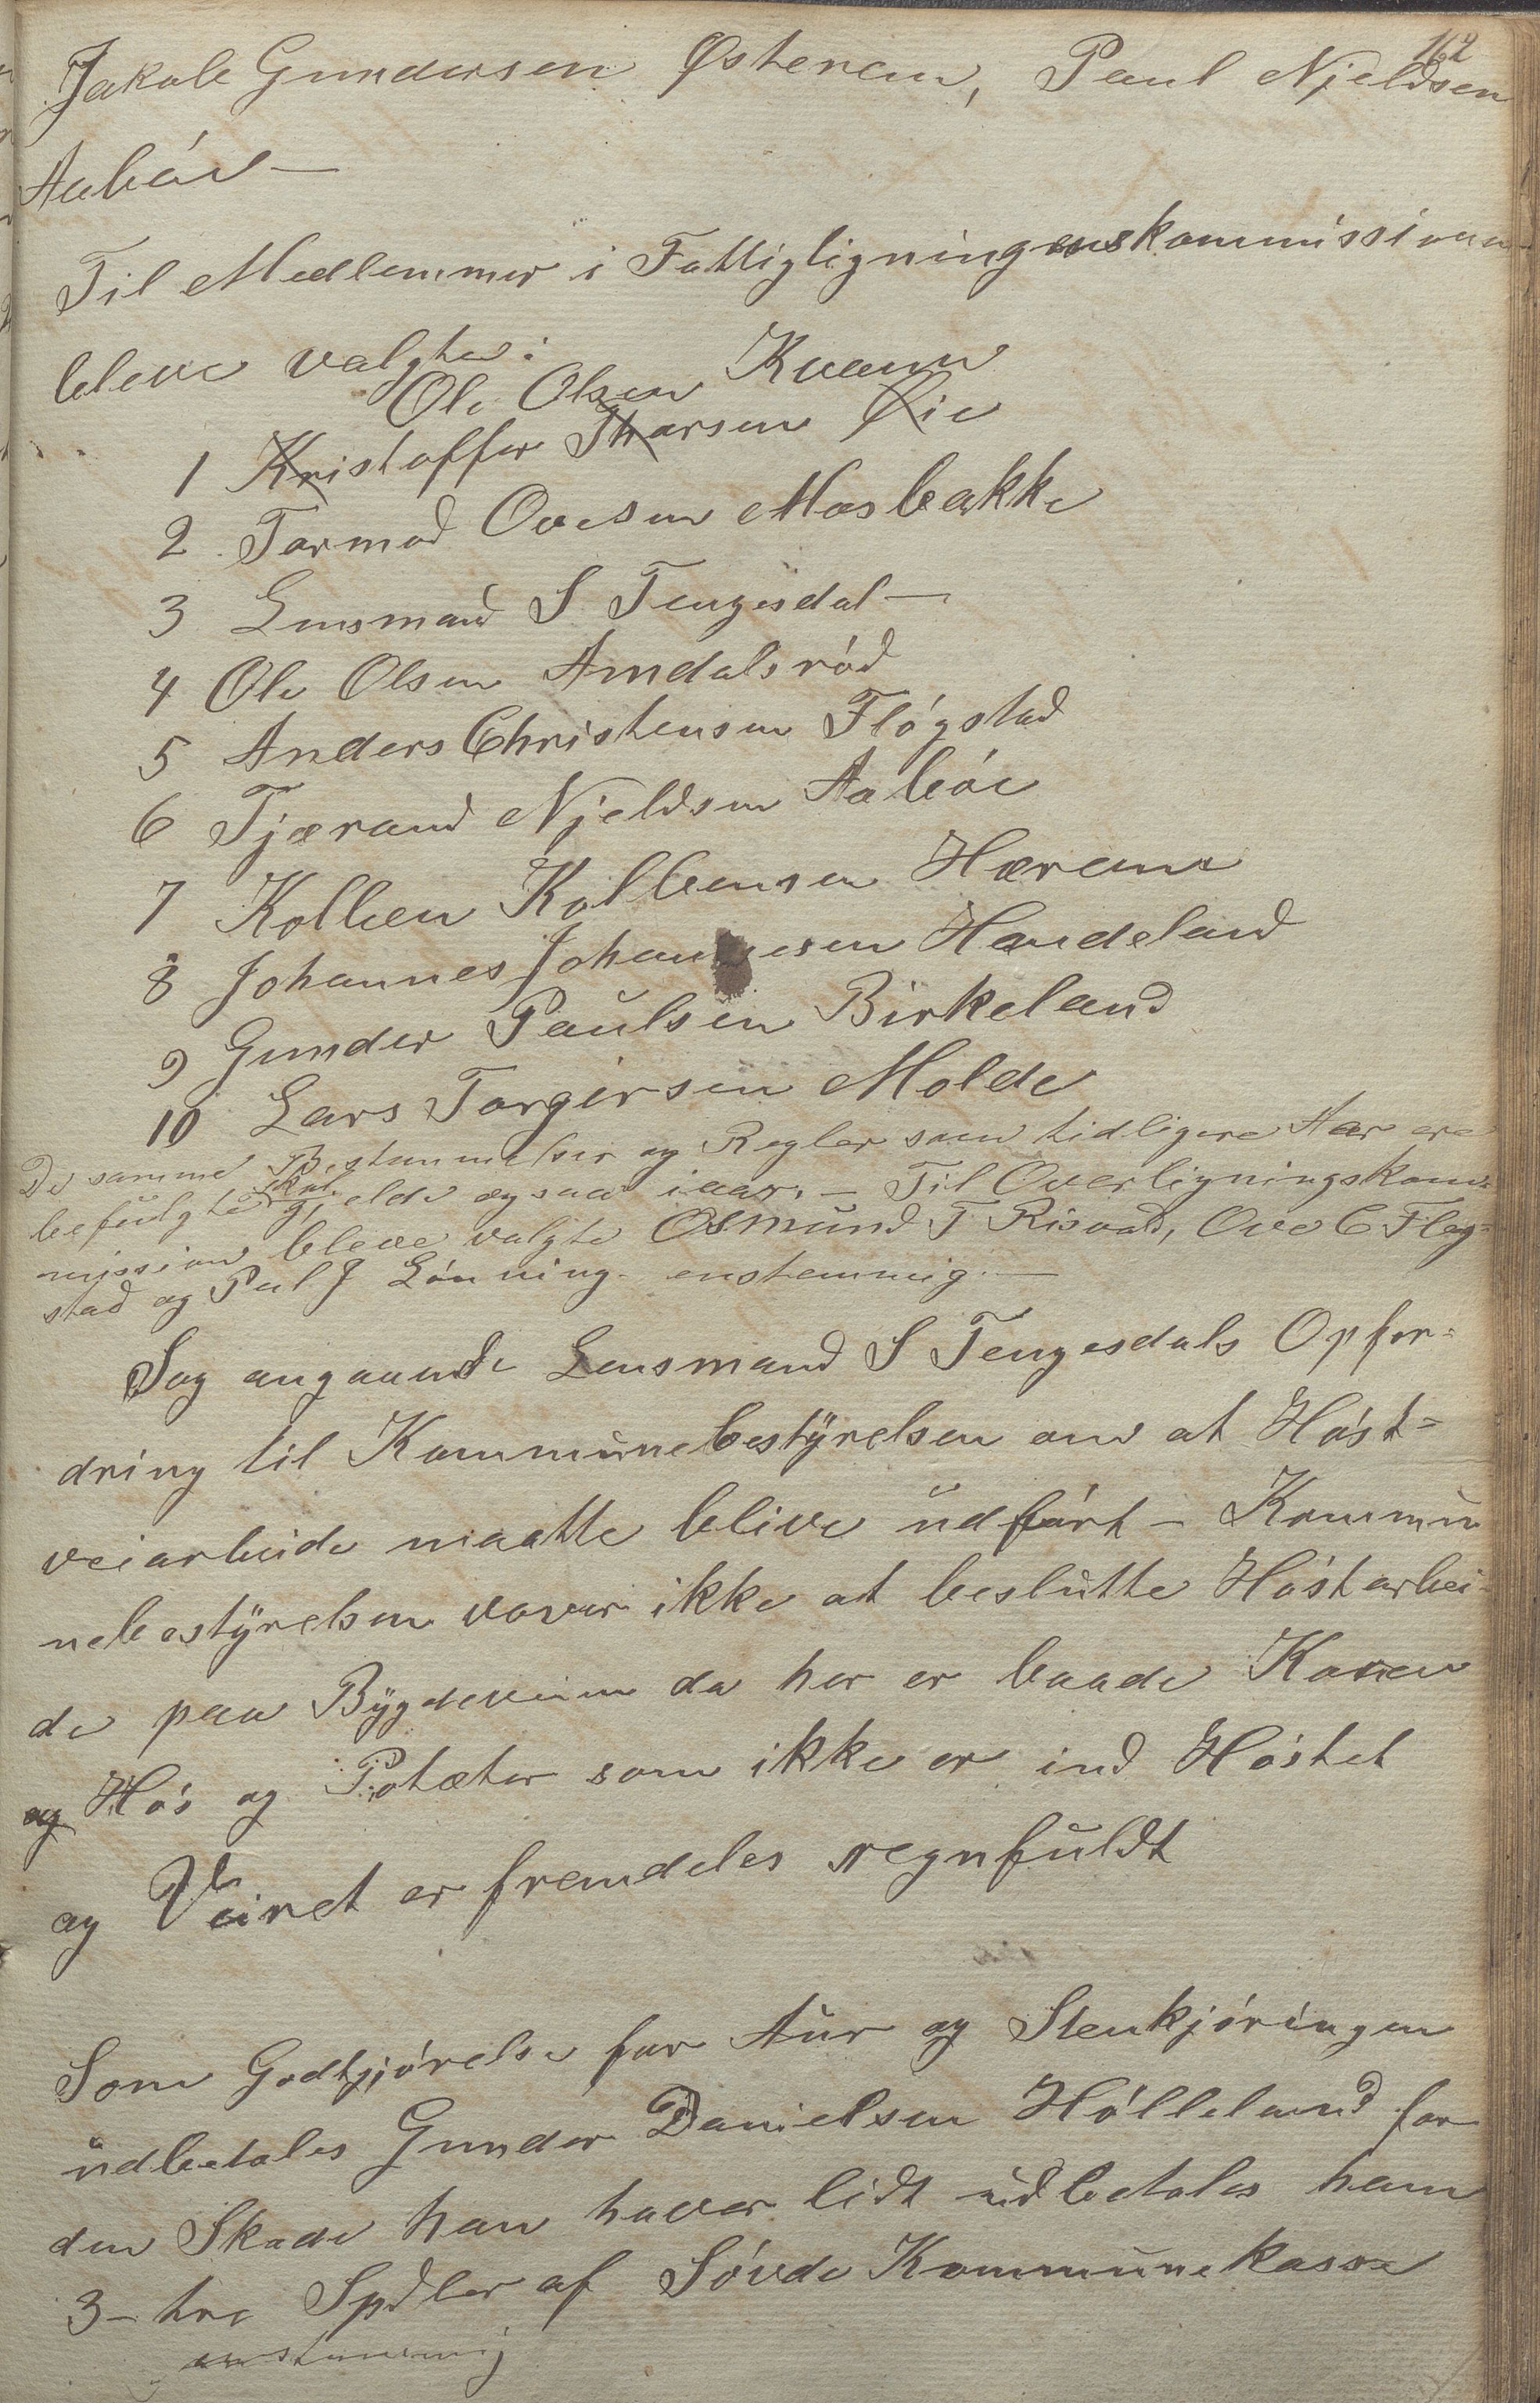 162
Jakob Gundersen Østerem, Paul Njeldsen
Aabøe —
Til Medlemmer i Fattigligningenskommissionen
bleve valgte:
Ole Olsen Kvam
1 Kristoffer Tharsen Øie
2 Tormod Ovesen Mosbakke
3 Lensmand S Tengesdal —
4 Ole Olsen Amdalsrød
5 Anders Christensen Fløgstad
6 Tjærand Njeldsen Aabøe
7 Kolben Kolbensen Hærem
8 Johannes Johannesen Handeland
9 Gunder Paulsen Birkeland
10 Lars Torgersen Molde
De samme Bestemmelser og Regler som tidligere Aar ere
befulgte skal gjelde ogsaa iaar. — Til Overligningskom=
mission bleve valgte Osmund T Risvad, Ove C Fløg=
stad og Pul J Lønning enstemmig. —
Sag angaaende Lensmand S Tengesdals Opfor=
dring til Kommunebestyrelsen om at Høst=
veiarbeide maatte blive udført — Kommu
nebestyrelsen vover ikke at beslutte Høstarbei=
de paa Bygdeveien da her er baade Koren
og Høs og Potæter som ikke er ind Høstet
og Veiret er fremdeles regnfuldt
Som Godtgjørelse for Aur og Stenkjøringen
udbetales Gunder Danielsen Hølleland for
den Skade han haver lidt udbetales ham
3 — tre Spdler af Søvde Kommunekasse
enstemmig